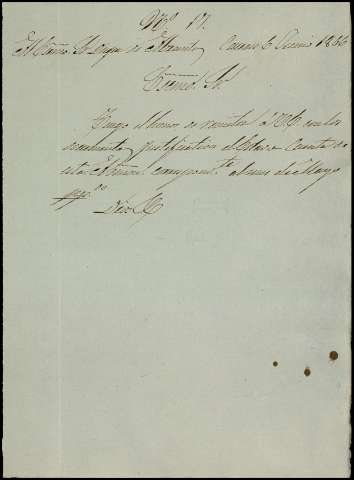 Nº. 17.
Al Exmo. Sr. Duque de Caracas 6 Junio 1856
Excmo. Sr.
Tengo el honor de remitir á V.E. con los
documentos justificativos el Estado Cuenta de
esta correspondte. al mes de Mayo
ppo.
Dios &